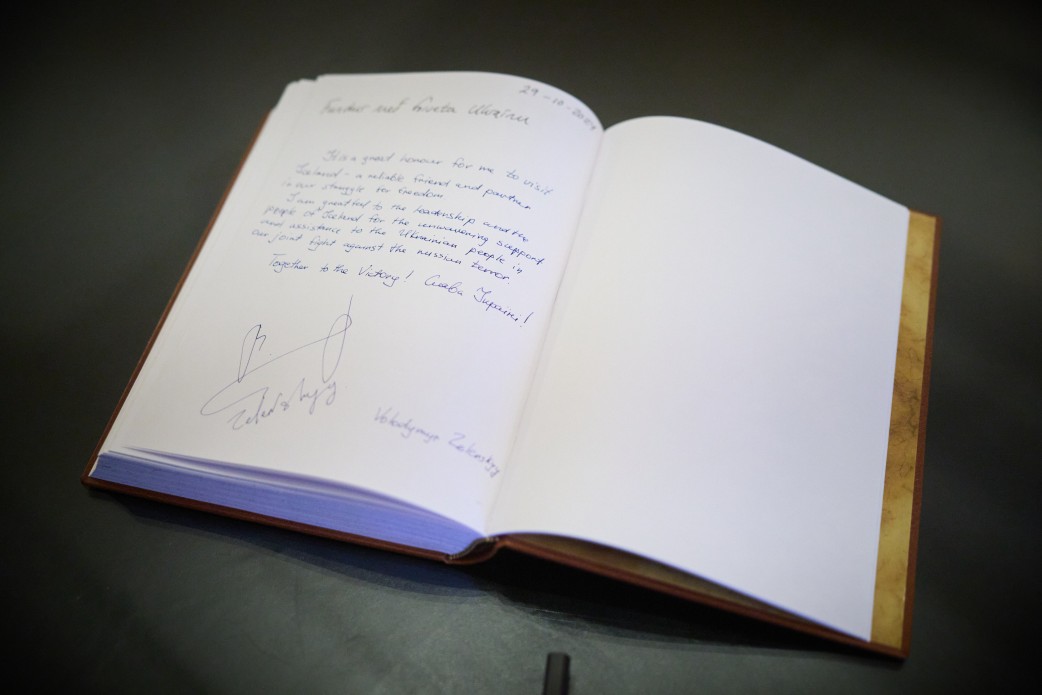 29-10-2024
Fundur með forseta Úkraínu
It is a great honour for me to visit
Iceland - a reliable friend and partner
in our struggle for freedom
I am grateful to the leadership and the
people of Iceland for the unwavering support
and assistance to the Ukrainian people in
our joint fight against the russian terror.
Together to the Victory! Слава Україні!
Zelenskyy
Volodymyr Zelenskyy